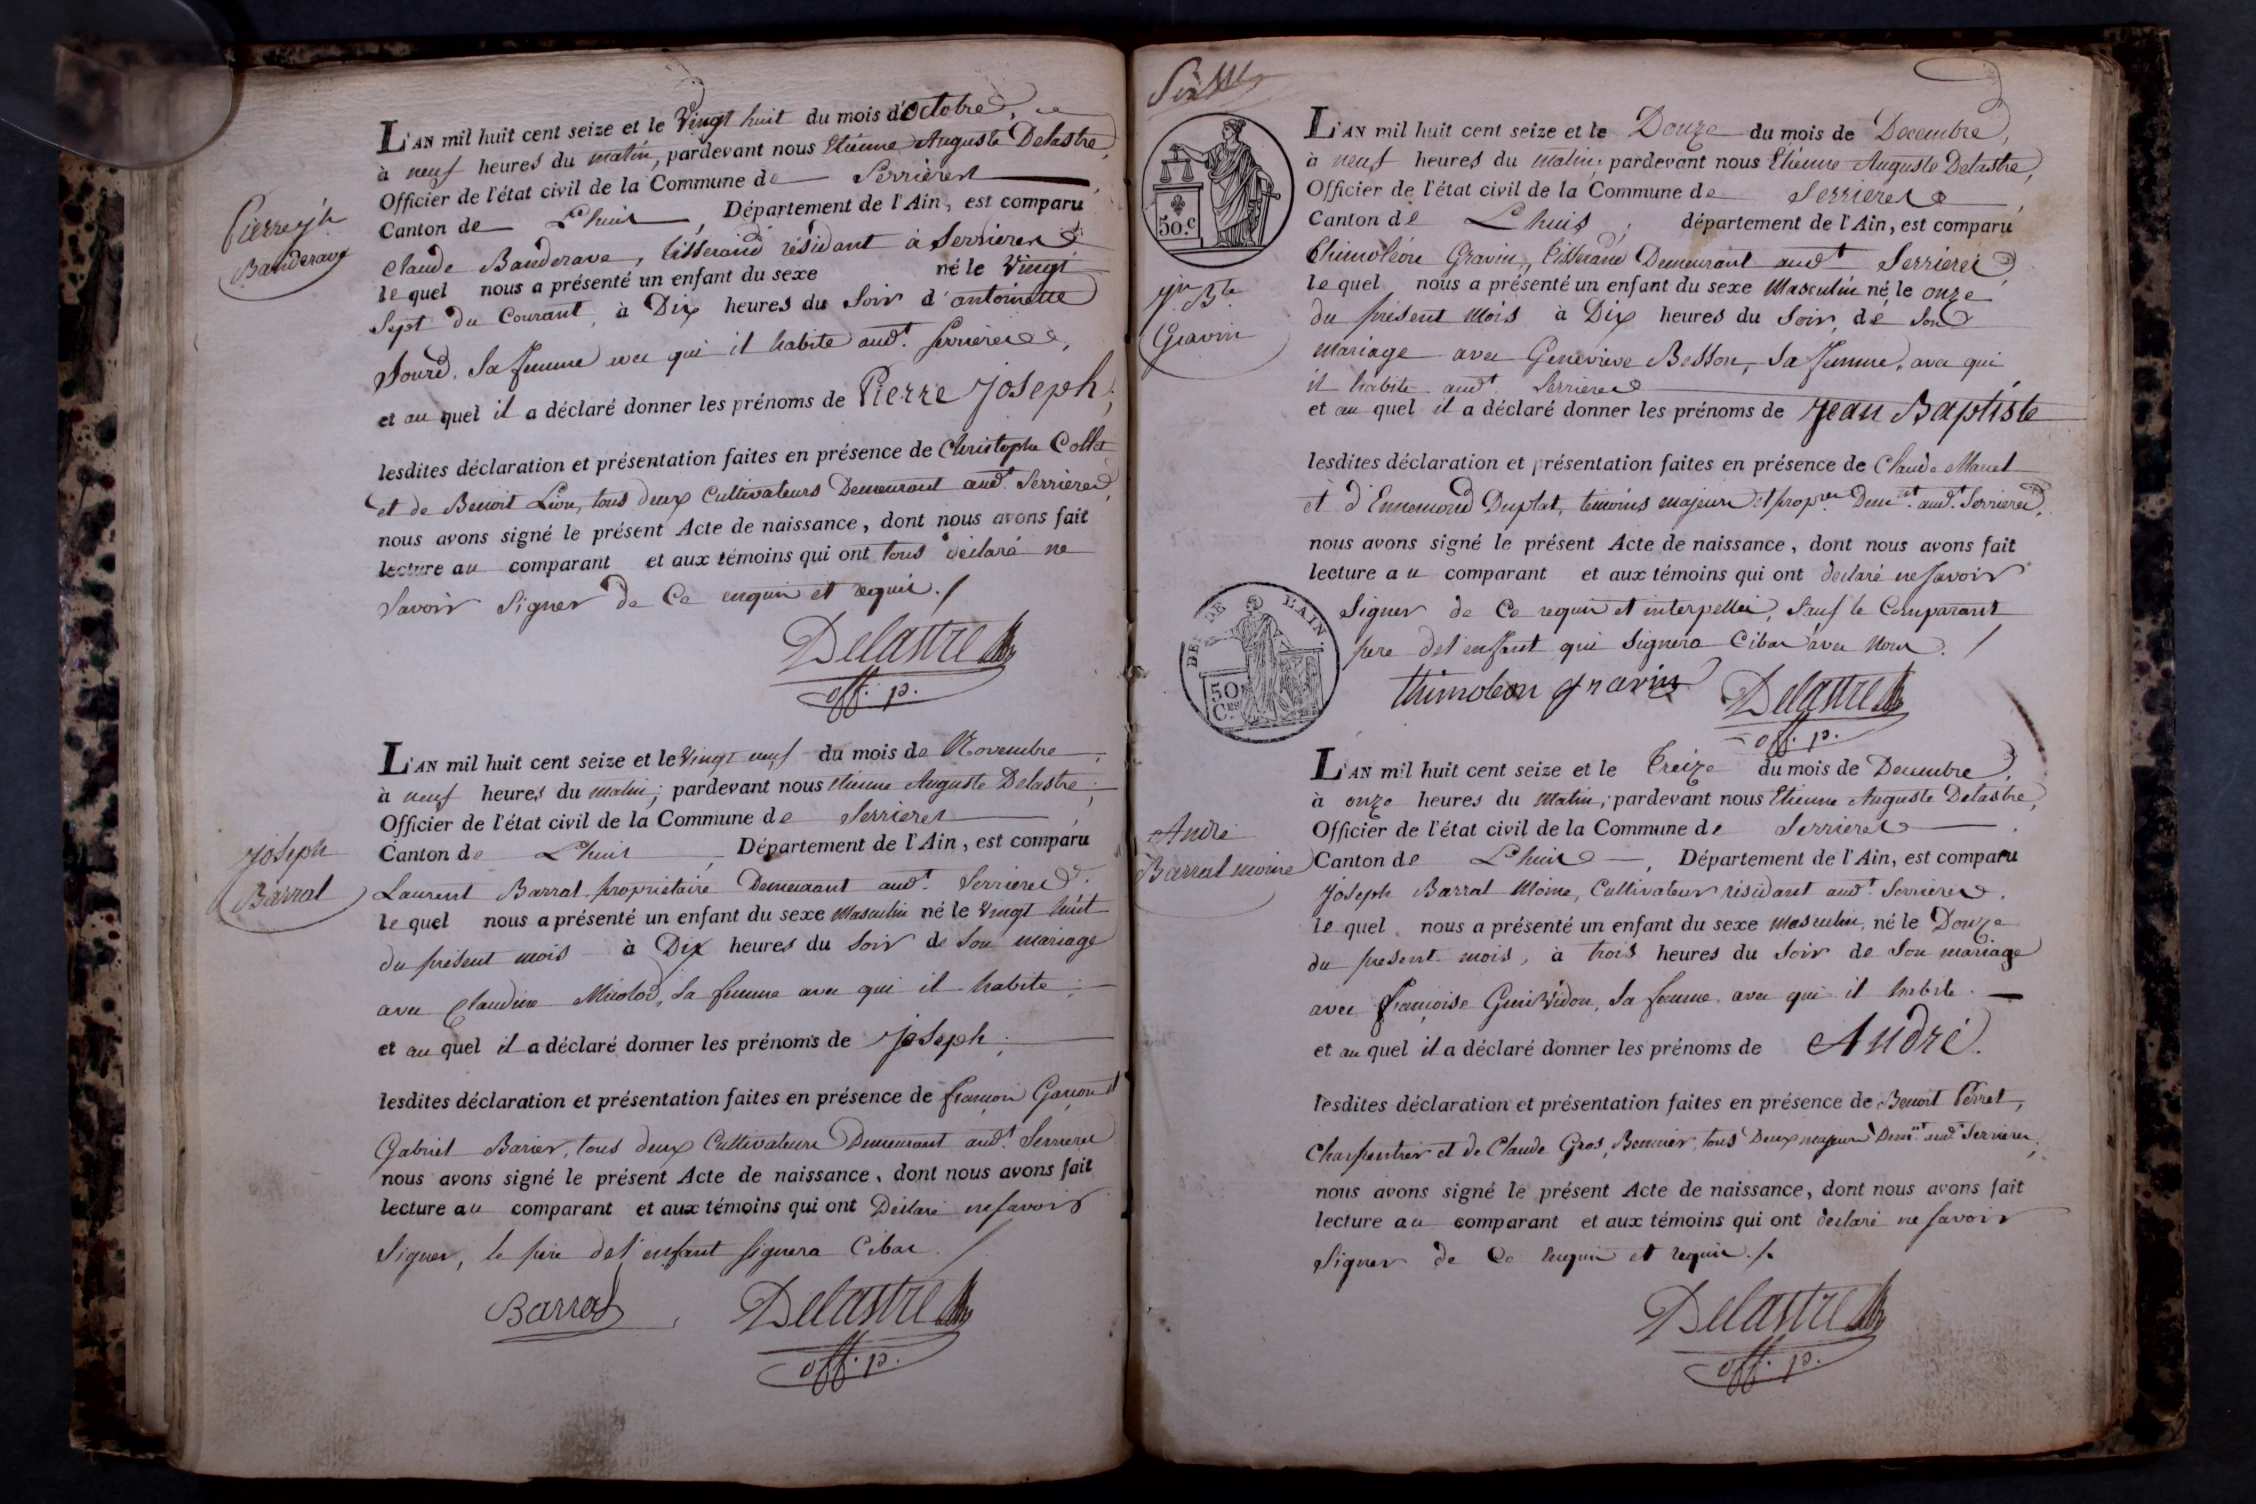 L'AN mil huit cent seize et le Vingt huit du mois d'Octobre,
à neuf heures du matin, pardevant nous Etienne Auguste Delastre,
Officier de l'état civil de la Commune de Serrieres
Canton de L'huis, Département de l'Ain, est comparu
Pierre jh
Banderave
Claude Banderave, tisserand résidant à Serrieres
le quel nous a présenté un enfant du sexe né le Vingt
Sept du Courant, à Dix heures du Soir d'antoinette
Sourd, Sa femme avec qui il habite audt. Serrieres,
et au quel il a déclaré donner les prénoms de Pierre Joseph;
lesdites déclaration et présentation faites en présence de Christophe Collet
et de Benoit Lion, tous deux Cultivateurs Demeurant audt. Serrieres,
nous avons signé le présent Acte de naissance, dont nous avons fait
lecture au comparant et aux témoins qui ont tous déclaré ne
Savoir Signer de Ce enquis et requis./
Delastre
off. p.
L'AN mil huit cent seize et le Vingt neuf du mois de Novembre,
à neuf heures du matin; pardevant nous etienne Auguste Delastre;
Officier de l'état civil de la Commune de Serrieres
Canton de L'huis, Département de l'Ain, est comparu
Joseph
Barral
Laurent Barral propriétaire Demeurant audt. Serrieres.
le quel nous a présenté un enfant du sexe Masculin né le Vingt huit
du présent mois à Dix heures du Soir de Son mariage
avec Claudine Miolod, Sa femme avec qui il habite;
et au quel il a déclaré donner les prénoms de Joseph;
lesdites déclaration et présentation faites en présence de françois Garçon et
Gabriel Barier, tous deux Cultivateurs Demeurant audt. Serrieres
nous avons signé le présent Acte de naissance, dont nous avons fait
lecture au comparant et aux témoins qui ont Déclaré ne Savoir
Signer, le père de l'enfant Signera Cibas./
Barral
Delastre
off. p.
50.c
L'AN mil huit cent seize et le Douze du mois de Decembre,
à neuf heures du matin; pardevant nous Etienne Auguste Delastre,
Officier de l'état civil de la Commune de Serrieres,
Canton de L'huis, département de l'Ain, est comparu
Thimoléon Gravin, tisserand Demeurant audt Serrieres
le quel nous a présenté un enfant du sexe Masculin né le onze
jn. Bte
Gravin
du présent mois à Dix heures du Soir, de Son
mariage avec Genevieve Besson, Sa femme, avec qui
il habite audt Serrieres
et au quel il a déclaré donner les prénoms de Jean Baptiste
lesdites déclaration et présentation faites en présence de Claude Marcel
et d'Ennemond Duplat, témoins majeurs et propres Demt. audt. Serrieres,
nous avons signé le présent Acte de naissance, dont nous avons fait
lecture au comparant et aux témoins qui ont déclaré ne Savoir
Signer de Ce requis et interpellés, Sauf le Comparant
père de l'enfant qui Signera Cibas avec Nous./
DE L'AIN.
50
Ces
thimoleon gravin
Delastre
off. p.
L'AN mil huit cent seize et le Treize du mois de Decembre,
à onze heures du Matin; pardevant nous Etienne Auguste Delastre,
Officier de l'état civil de la Commune de Serrieres.
Canton de L'huis, Département de l'Ain, est comparu
André
Barral moine
Joseph Barral Moine, Cultivateur résidant audt. Serrieres.
le quel nous a présenté un enfant du sexe masculin, né le Douze
du present mois, à trois heures du Soir de Son mariage
avec françoise Sa femme avec qui il habite.
et au quel il a déclaré donner les prénoms de André.
lesdites déclaration et présentation faites en présence de Benoit Perret,
Charpentier et de Claude Gros, tous Deux majeurs Demt audt Serrieres,
nous avons signé le présent Acte de naissance, dont nous avons fait
lecture au comparant et aux témoins qui ont declaré ne Savoir
Signer de Ce enquis et requis./.
Delastre
off. p.